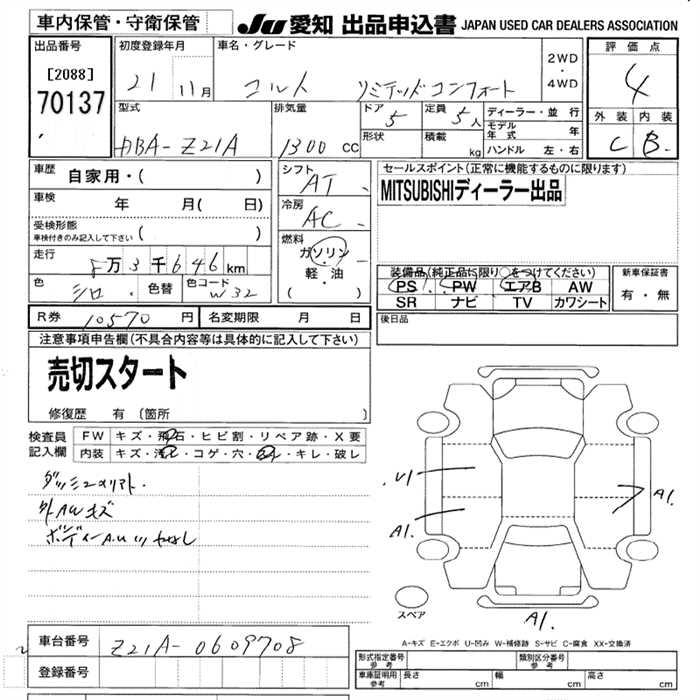 車内保管・守衛保管
JU 愛知 出品申込書 JAPAN USED CAR DEALERS ASSOCIATION
出品番号
[2088]
70137
初度登録年月
21 11月
車名・グレード
コルト リミテッドコンフォート
2WD
・
4WD
評価点
4
外装 内装
C B
型式
DBA-Z21A
排気量
1300 cc
ドア
5
形状
定員
5人
積載
kg
ディーラー・並行
モデル年式 年
ハンドル 左・右
車歴
自家用・( )
車検
年 月( 日)
受検形態
車検付きのみ記入して下さい ( )
走行
8万3千646km
色
シロ
色替
色コード
W32
シフト
AT
冷房
AC
燃料
ガソリン
・
軽・油
( )
セールスポイント(正常に機能するものに限ります)
MITSUBISHIディーラー出品
装備品(純正品に限り○をつけてください)
PS PW エアB AW
SR ナビ TV カワシート
新車保証書
有・無
R券 10570 円
名変期限 月 日
後日品
注意事項申告欄(不具合内容等は具体的に記入して下さい)
売切スタート
修復歴 有 (箇所 )
検査員
記入欄
FW キズ・飛石・ヒビ割・リペア跡・X要
内装 キズ・汚れ・コゲ・穴・スレ・キレ・破レ
外AWキズ
U1
A1.
A1.
A1.
スペア
A-キズ E-エクボ U-凹み W-補修跡 S-サビ C-腐食 XX-交換済
車台番号
Z21A-0609708
登録番号
形式指定番号
参考
類別区分番号
参考
車庫証明用
参考
長さ cm
幅 cm
高さ cm